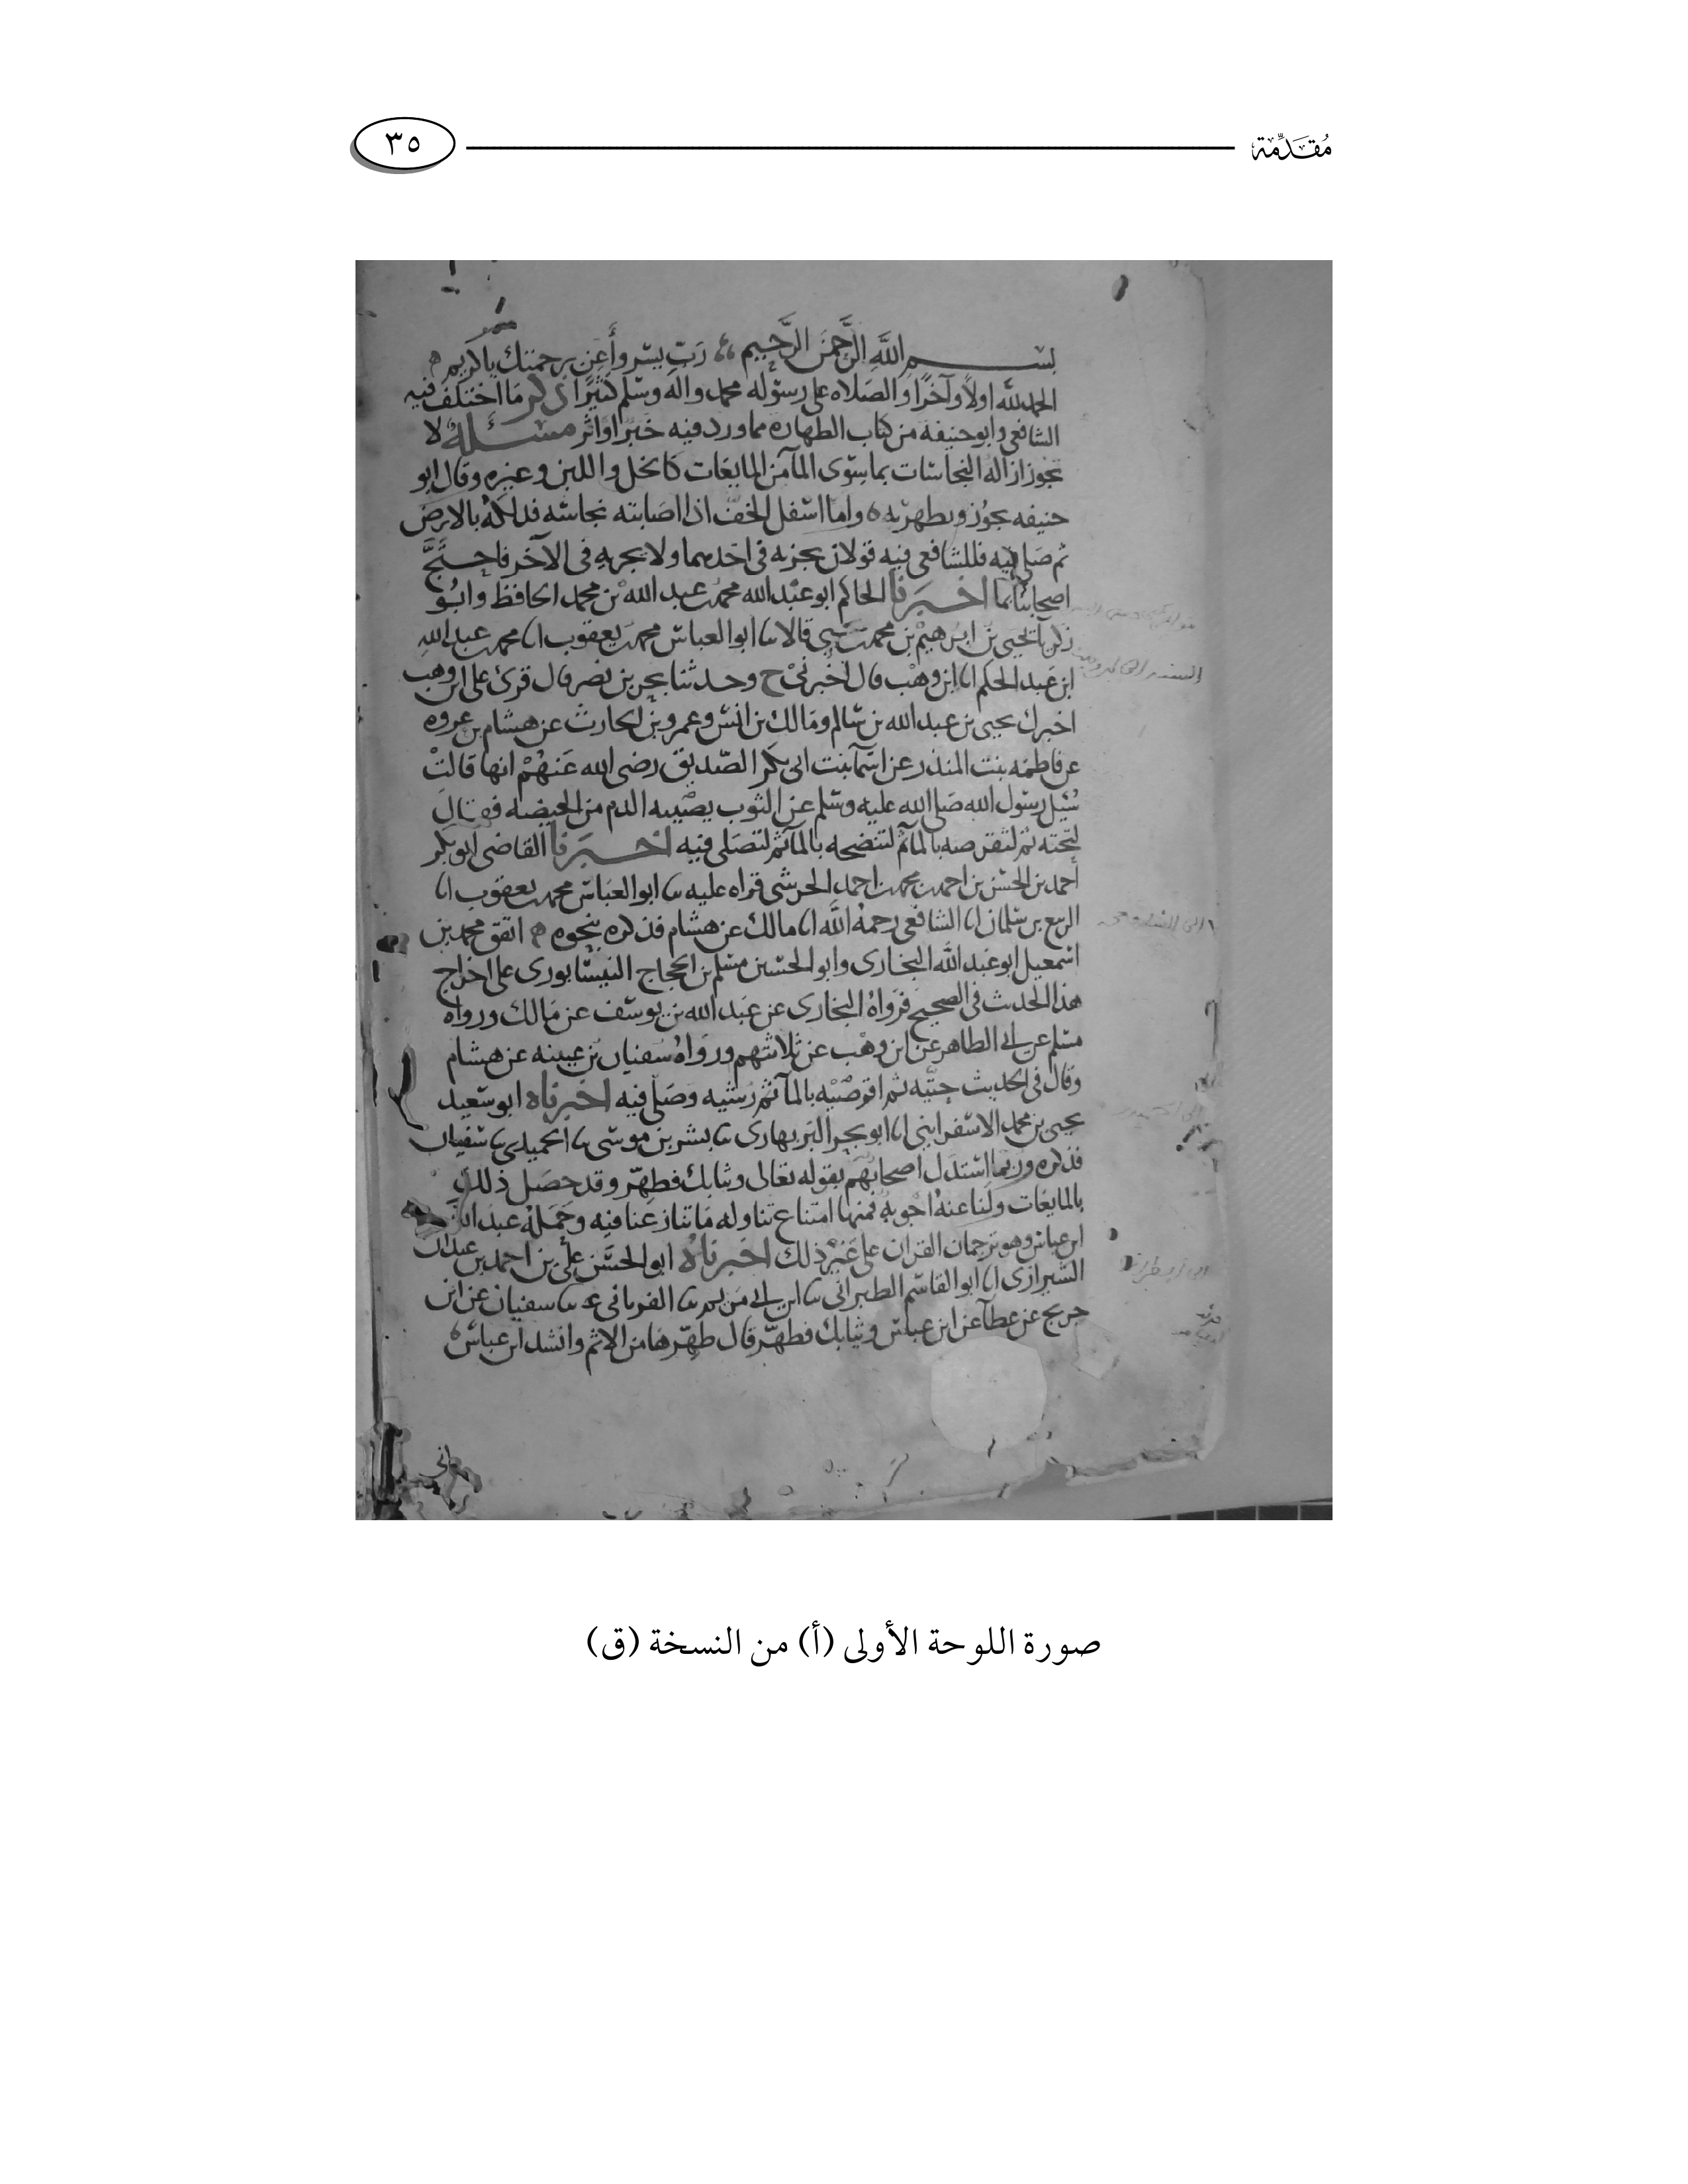 مُقَدِّمَة
٣٥
بسم اللَّه الرَّحمَن الرَّحِيم رَبّ يسّر وأَعِن برحمتك ياكريم
الحمد لله اولًا وآخرًا والصلاه على رسوله محمد واله وسلم كثيرًا ذكر ما اختلف فيه
الشافعي وابو حنيفه من كتاب الطهاره مما ورد فيه خبر او اثر مسئلة لا
تجوز ازاله النجاسات بما سوى الما من المايعات كالخل واللبن وغيره وقال ابو
حنيفه يجوز ويطهر به ه واما اسفل الخف اذا اصابته نجاسه فدلكه بالارض
ثم صلى فيه فللشافعي فيه قولان يجزيه في احدهما ولا يجزيه في الآخر فاحتجَّ
اصحابنا بما اخبرنا الحاكم ابو عبد الله محمد بن عبد الله بن محمد الحافظ وابو
زكريا يحيى بن ابرهيم بن محمد بن يحيى قالا ثنا ابو العباس محمد بن يعقوب انا محمد بن عبد الله
ابن عبد الحكم انا ابن وهب قال اخبرني ح وحدثنا بحر بن نصر قال قرئ على ابن وهب
اخبرك يحيى بن عبد الله بن سالم ومالك بن انس وعمرو بن الحارث عن هشام بن عروه
عن فاطمه بنت المنذر عن اسما بنت ابي بكر الصديق رضي الله عنهم انها قالت
سئل رسول الله صلى الله عليه وسلم عن الثوب يصيبه الدم من الحيضه فقال
لتحته ثم لتقرصه بالما ثم لتنضحه بالما ثم لتصلى فيه اخبرنا القاضي ابو بكر
احمد بن الحسن بن احمد بن محمد بن احمد الحرشي قراه عليه ثنا ابو العباس محمد بن يعقوب انا
الربيع بن سلمان انا الشافعي رحمه الله انا مالك عن هشام فذكره بنحوه اتفق محمد بن
اسمعيل ابو عبد الله البخاري وابو الحسين مسلم بن الحجاج النيسابوري على اخراج
هذا الحديث في الصحيح فرواه البخاري عن عبد الله بن يوسف عن مالك ورواه
مسلم عن ابي الطاهر عن ابن وهب عن ثلاثتهم ورواه سفيان بن عيينه عن هشام
وقال في الحديث حتيه ثم اقرصيه بالما ثم رشيه وصلي فيه اخبرناه ابو سعيد
يحيى بن محمد الاسفرايني انا ابو بحر البربهاري ثنا بشر بن موسى ثنا الحميدي ثنا سفيان
فذكره وربما استدل اصحابهم بقوله تعالى وثيابك فطهّر وقد حصل ذلك
بالمايعات ولنا عنه اجوبة فمنها امتناع تناوله ما تنازعنا فيه وحمله عبد الله
ابن عباس وهو ترجمان القران على غير ذلك اخبرناه ابو الحسن علي بن احمد بن عبدان
الشيرازي انا ابو القاسم الطبراني ثنا ابن ابي مريم ثنا الفريابي ثنا سفيان عن ابن
جريج عن عطا عن ابن عباس وثيابك فطهّر قال طهّرها من الاثم وانشد ابن عباس
صورة اللوحة الأولى (أ) من النسخة (ق)